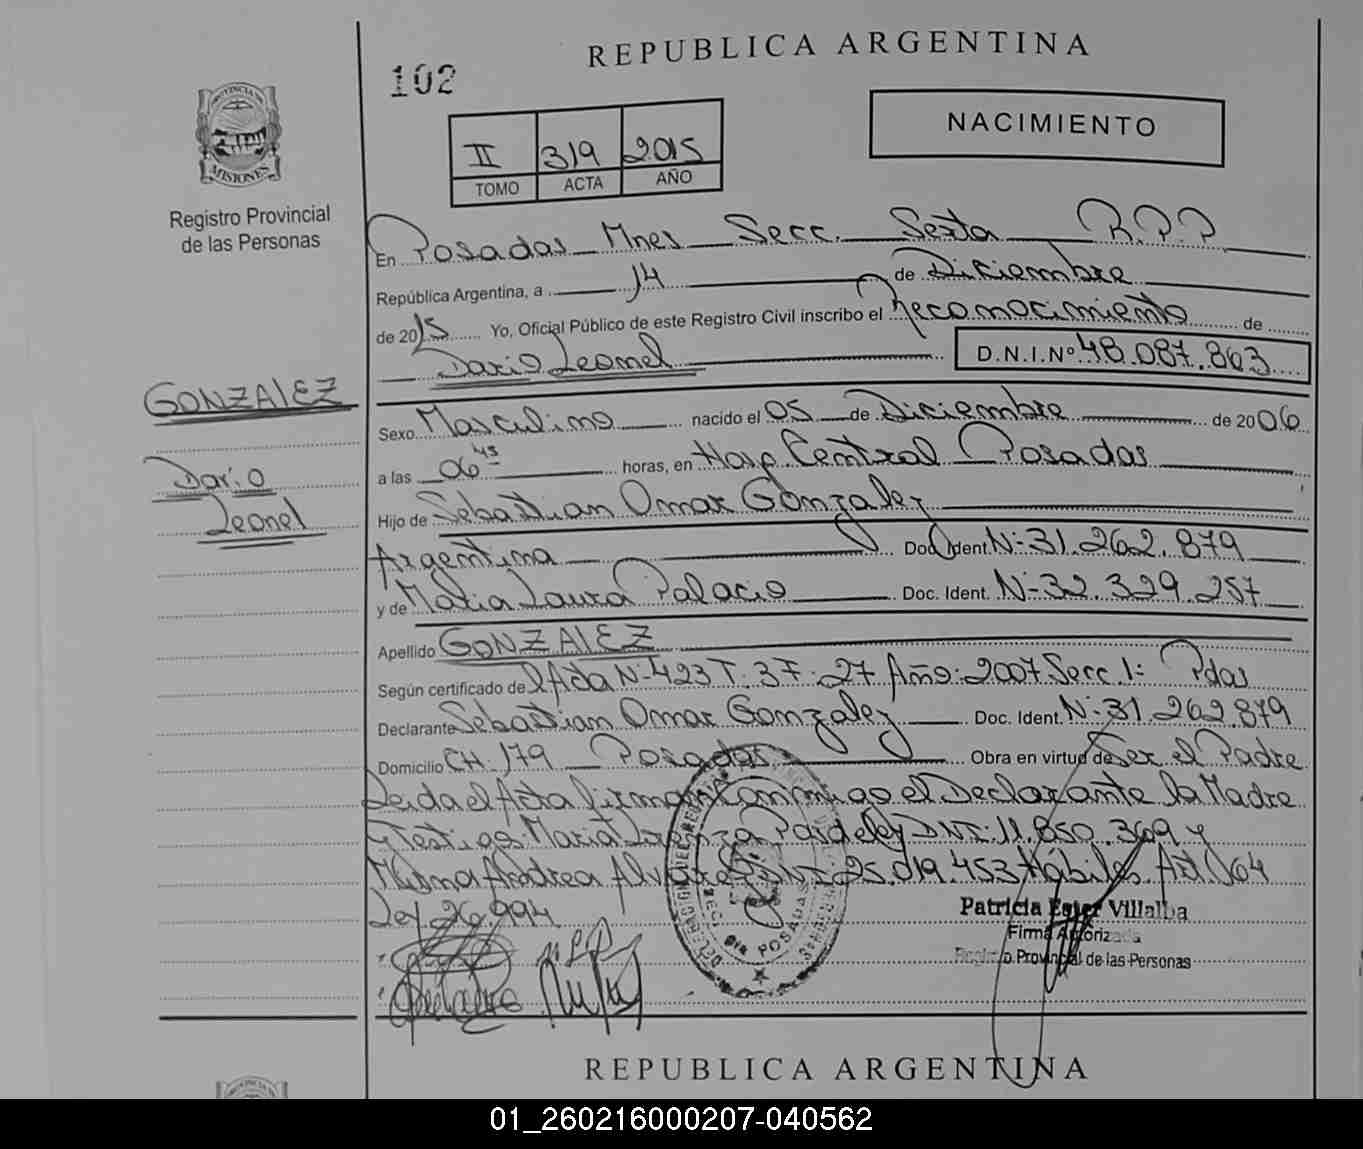 REPUBLICA ARGENTINA
102
PROVINCIA DE
MISIONES
Registro Provincial
de las Personas
II 319 2015
TOMO ACTA AÑO
NACIMIENTO
En Posadas Mnes Secc. Sexta R.P.P.
República Argentina, a 14 de Diciembre
de 2015 Yo, Oficial Público de este Registro Civil inscribo el Reconocimiento de
Dario Leonel D.N.I.Nº 48.087.863
GONZALEZ
Dario
Leonel
Sexo Masculino nacido el 05 de Diciembre de 2006
a las 06 45 horas, en Hosp. Central Posadas
Hijo de Sebastian Omar Gonzalez
Argentina Doc. Ident. N: 31.262.879
y de Maria Laura Palacio Doc. Ident. N: 32.329.257
Apellido GONZALEZ
Según certificado de Acta N: 423 T: 3 F: 27 Año: 2007 Secc. 1: Pdas
Declarante Sebastian Omar Gonzalez Doc. Ident. N: 31.262.879
Domicilio CH: 179 Posadas Obra en virtud de Ser el Padre
Leida el Acta firman conmigo el Declarante la Madre
y Testigos: Maria DNI: 11.850.369 y
Mirna Andrea DNI 25.019.453 Hábiles Art. 64
Ley 26.994
POSADAS
Patricia Ester Villalba
Firma Autorizada
Registro Provincial de las Personas
REPUBLICA ARGENTINA
01_260216000207-040562